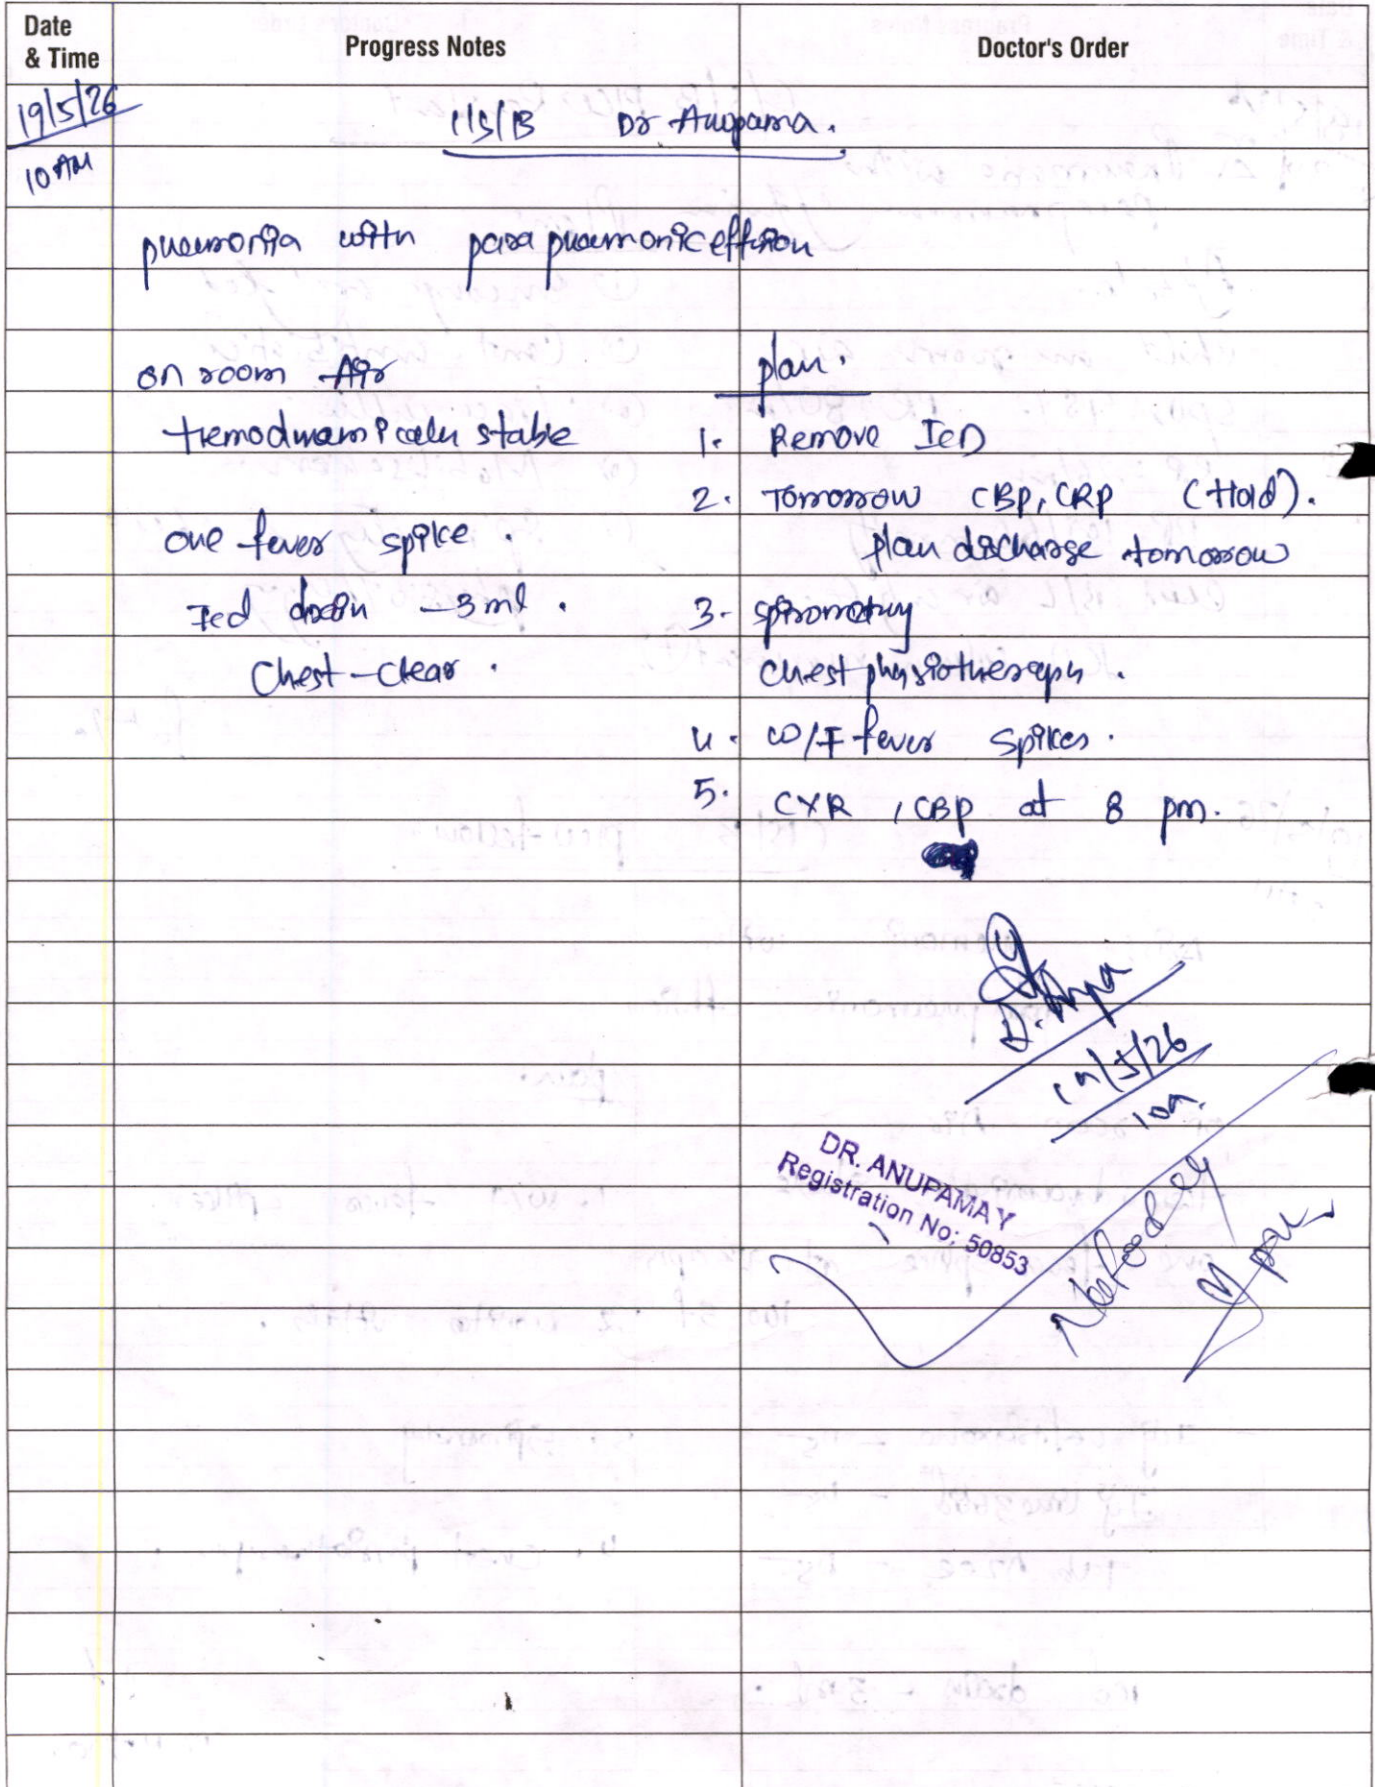 Date & Time
Progress Notes
Doctor's Order
19/5/26
10 AM
c/s/B Dr Anupama.
pneumonia with parapneumonic effusion
on room Air
Hemodynamically stable
one fever spike.
Icd drain - 3ml.
Chest - clear.
plan.
1. Remove ICD
2. Tomorrow CBP, CRP (Hold).
plan discharge tomorrow
3. spirometry
chest physiotherapy.
4. w/f fever spikes.
5. CXR, CBP at 8 pm.
19/5/26
10a.
DR. ANUPAMA Y
Registration No: 50853
Noted by